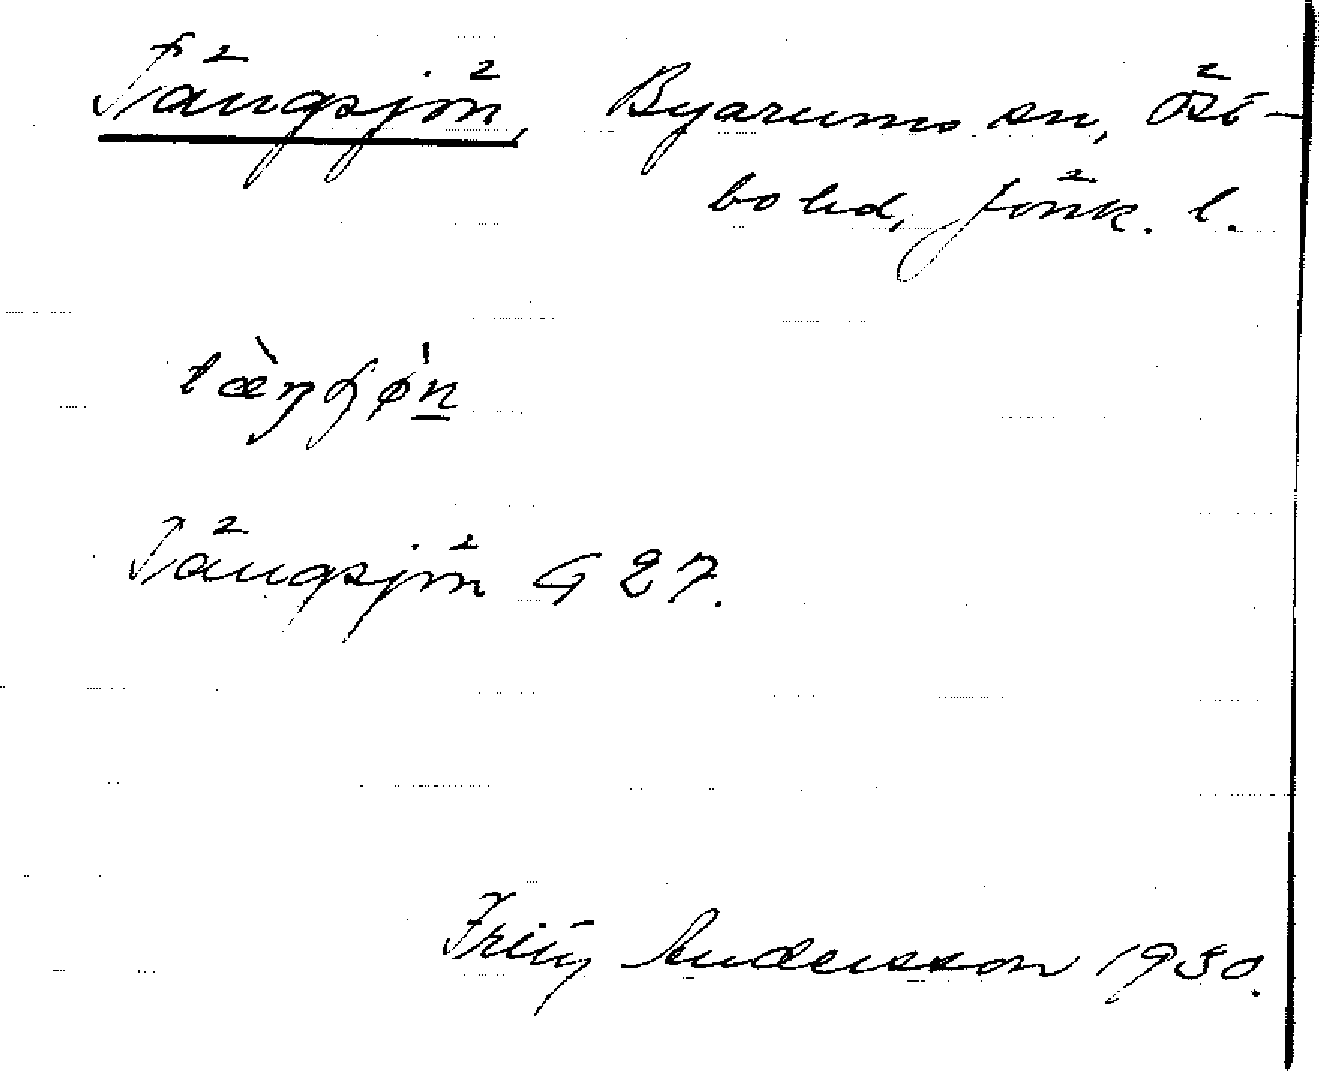 Tängsjön, Byarums sn, Öst-
bo hd, Jönk. l.
tæ̀ŋʃø̍n
Tängsjön G 27.
Fritz Andersson 1930.